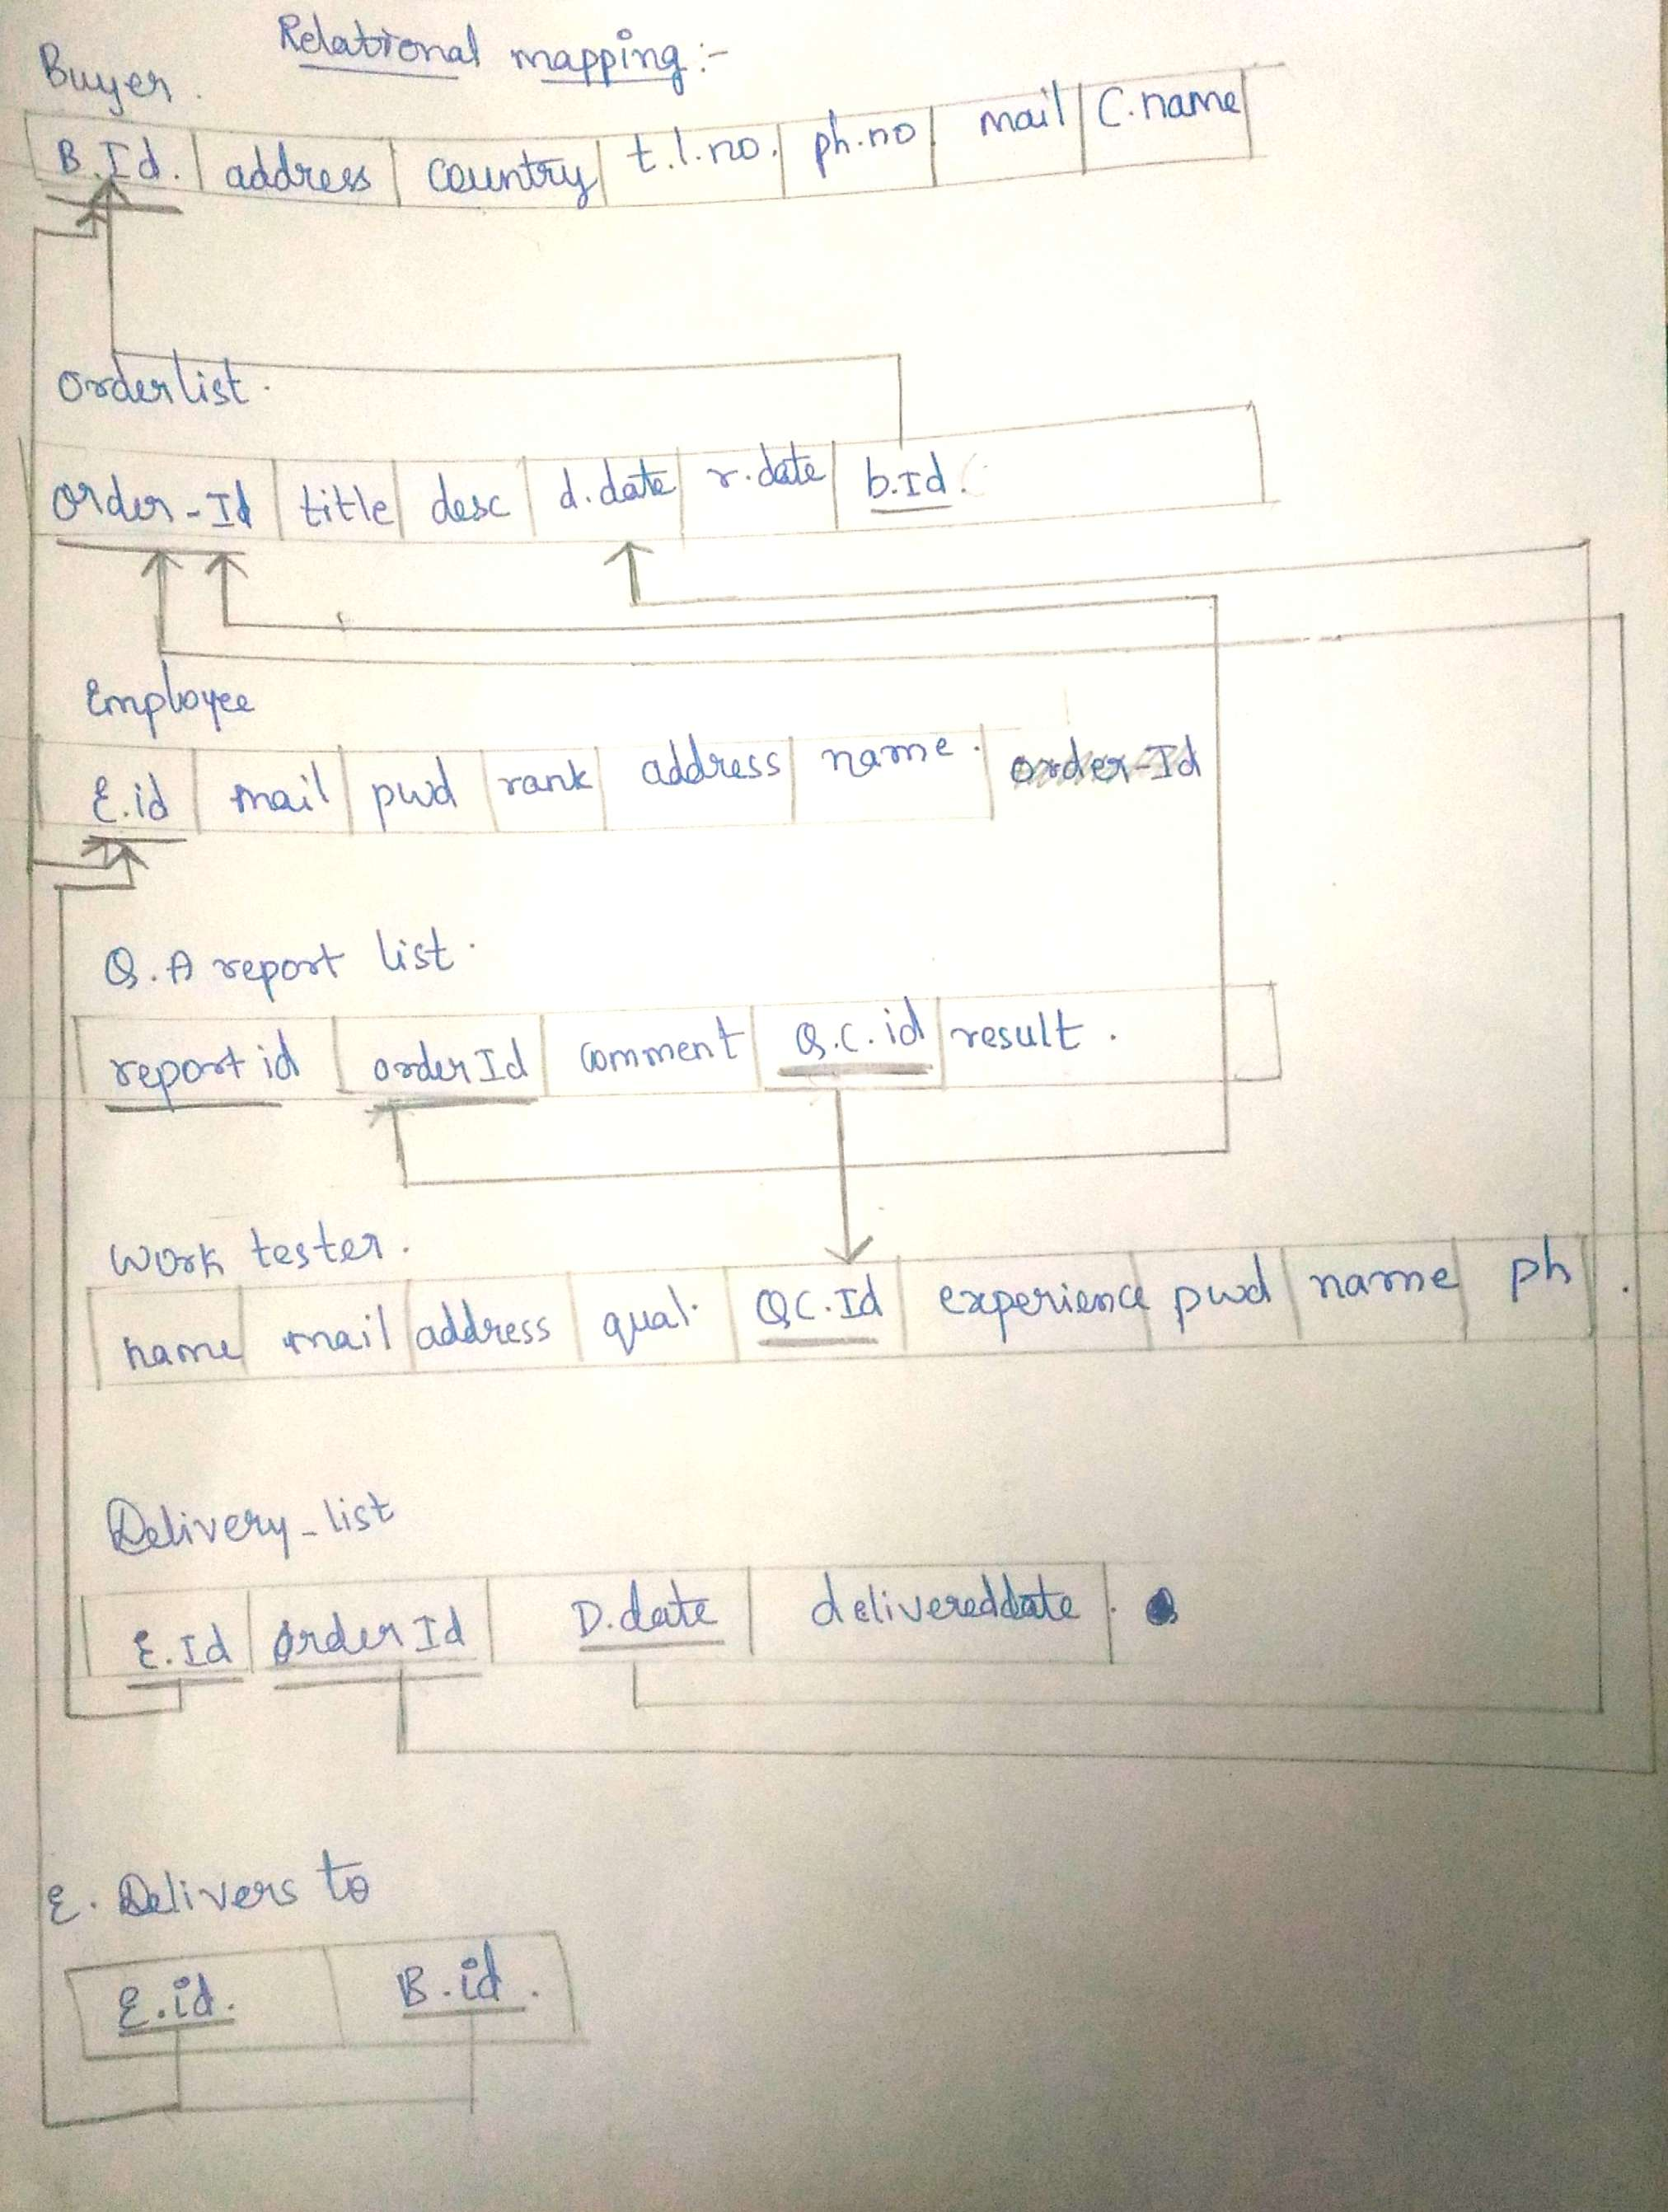 Relational mapping:-
Buyer.
B.Id. address country t.l.no. ph.no mail C.name
Orderlist.
Order-Id title desc d.date r.date b.Id.
Employee
E.id mail pwd rank address name. order-Id
Q.A report list.
report id orderId comment Q.C.id result.
Work tester.
name mail address qual. QC.Id experience pwd name ph.
Delivery_list
E.Id Order Id D.date delivereddate.
E. Delivers to
E.id. B.id.